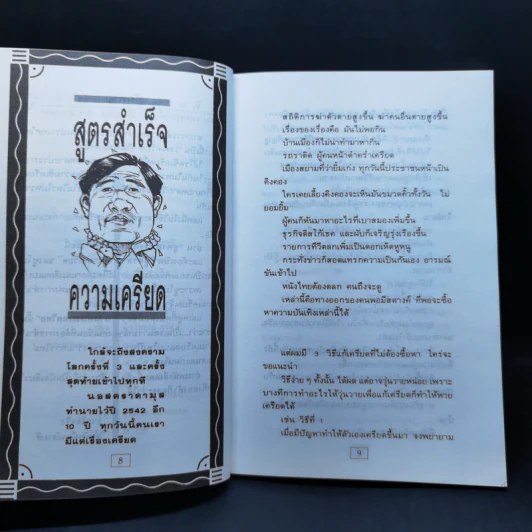 สูตรสำเร็จ
ความเครียด
ใกล้จะถึงสงคราม
โลกครั้งที่ 3 และครั้ง
สุดท้ายเข้าไปทุกที
นอสตราดามุส
ทำนายไว้ปี 2542 อีก
10 ปี ทุกวันนี้คนเรา
มีแต่เรื่องเครียด
8
สถิติการฆ่าตัวตายสูงขึ้น ฆ่าคนอื่นตายสูงขึ้น
เรื่องของเรื่องคือ มันไม่พอกิน
บ้านเมืองก็ไม่น่าทำมาหากิน
รถราติด ผู้คนหน้าดำคร่ำเครียด
เมืองสยามที่ว่ายิ้มเก่ง ทุกวันนี้ประชาชนหน้าเป็น
คิงคอง
ใครเคยเลี้ยงคิงคองจะเห็นมันขมวดคิ้วทั้งวัน ไม่
ยอมยิ้ม
ผู้คนก็หันมาหาอะไรที่เบาสมองเพิ่มขึ้น
ธุรกิจตลกโปกเช็ค และผับก็เจริญรุ่งเรืองขึ้น
รายการทีวีตลกเพิ่มเป็นดอกเห็ดหูหนู
กระทั่งข่าวก็สอดแทรกความเป็นกันเอง อารมณ์
ขันเข้าไป
หนังไทยต้องตลก คนถึงจะดู
เหล่านี้คือทางออกของคนพอมีสตางค์ ที่พอจะซื้อ
หาความบันเทิงเหล่านี้ได้
แต่ผมมี 3 วิธีแก้เครียดที่ไม่ต้องซื้อหา ใคร่จะ
ขอแนะนำ
วิธีง่าย ๆ ทั้งนั้น ได้ผล แต่อาจวุ่นวายหน่อย เพราะ
บางทีการทำอะไรให้วุ่นวายเพื่อแก้เครียดก็ทำให้หาย
เครียดได้
เช่น วิธีที่ 1
เมื่อมีปัญหาทำให้ตัวเองเครียดขึ้นมา จงพยายาม
9